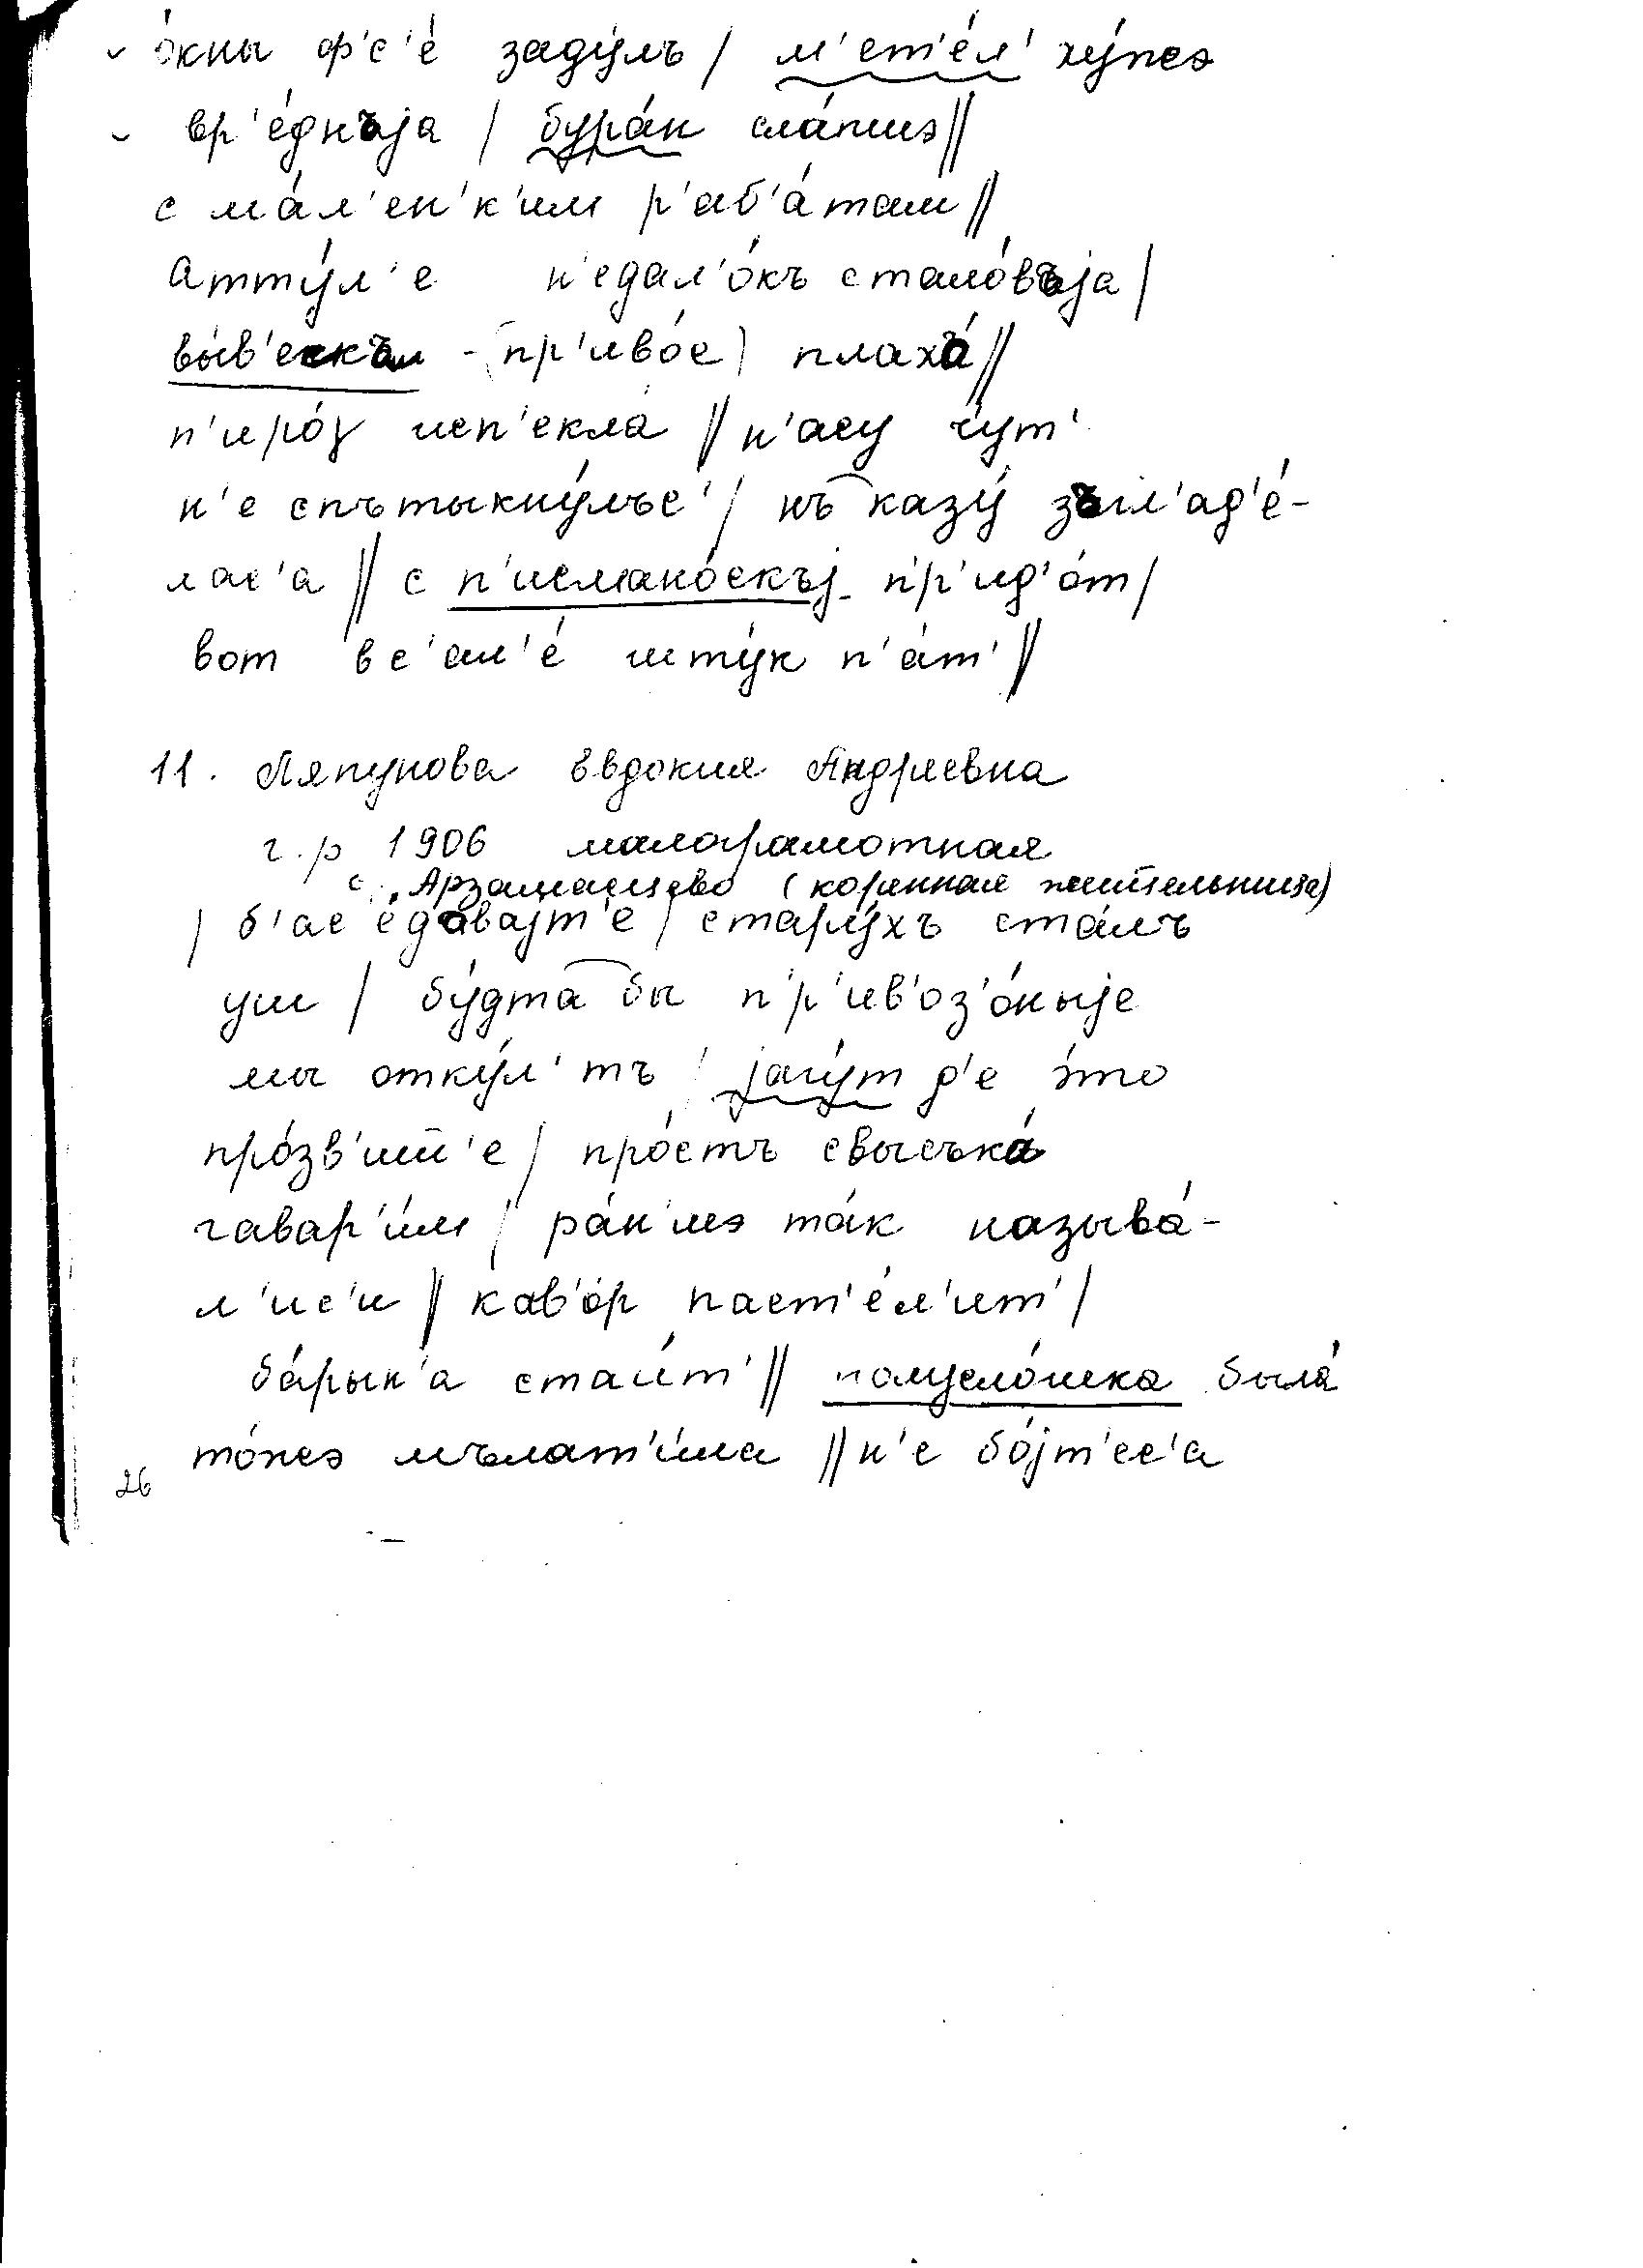 о́кны ф'с'е́ заду́лъ / м'ет'е́л' ху́жэ
вр'е́днъjа / бура́н сла́пшэ //
с ма́л'ен'к'им р'аб'а́там //
атту́л'е н'едал'о́къ стало́въjа /
вы́в'ескъм - пр'иво́с / плаха́ //
п'иро́γ исп'екла́ // н'асу чу́т'
н'е спътыкну́лъс' / нъ казу́ зъгл'ад'е́-
лас'а // с п'исмано́скъj пр'ид'о́т /
вот вс'ем'е́ шту́к п'а́т' //
11. Ляпунова Евдокия Андреевна
г.р 1906 малограмотная
с. Арзамасцево (коренная жительница)
/ б'ас'е́давајт'е / стару́хъ ста́лъ
уш / бу́дта бы пр'ив'оз'о́ныjе
мы отку́л'тъ / jагу́т д'е э́то
про́зв'ишш'е / про́стъ свысъка́
гавар'и́м / ра́н'шэ та́к называ́-
л'ис'и // кав'о́р паст'е́л'ит' /
ба́рын'а стаи́т' // полусло́шка была́
то́жэ мълат'и́ла // н'е бо́jт'ес'а
26